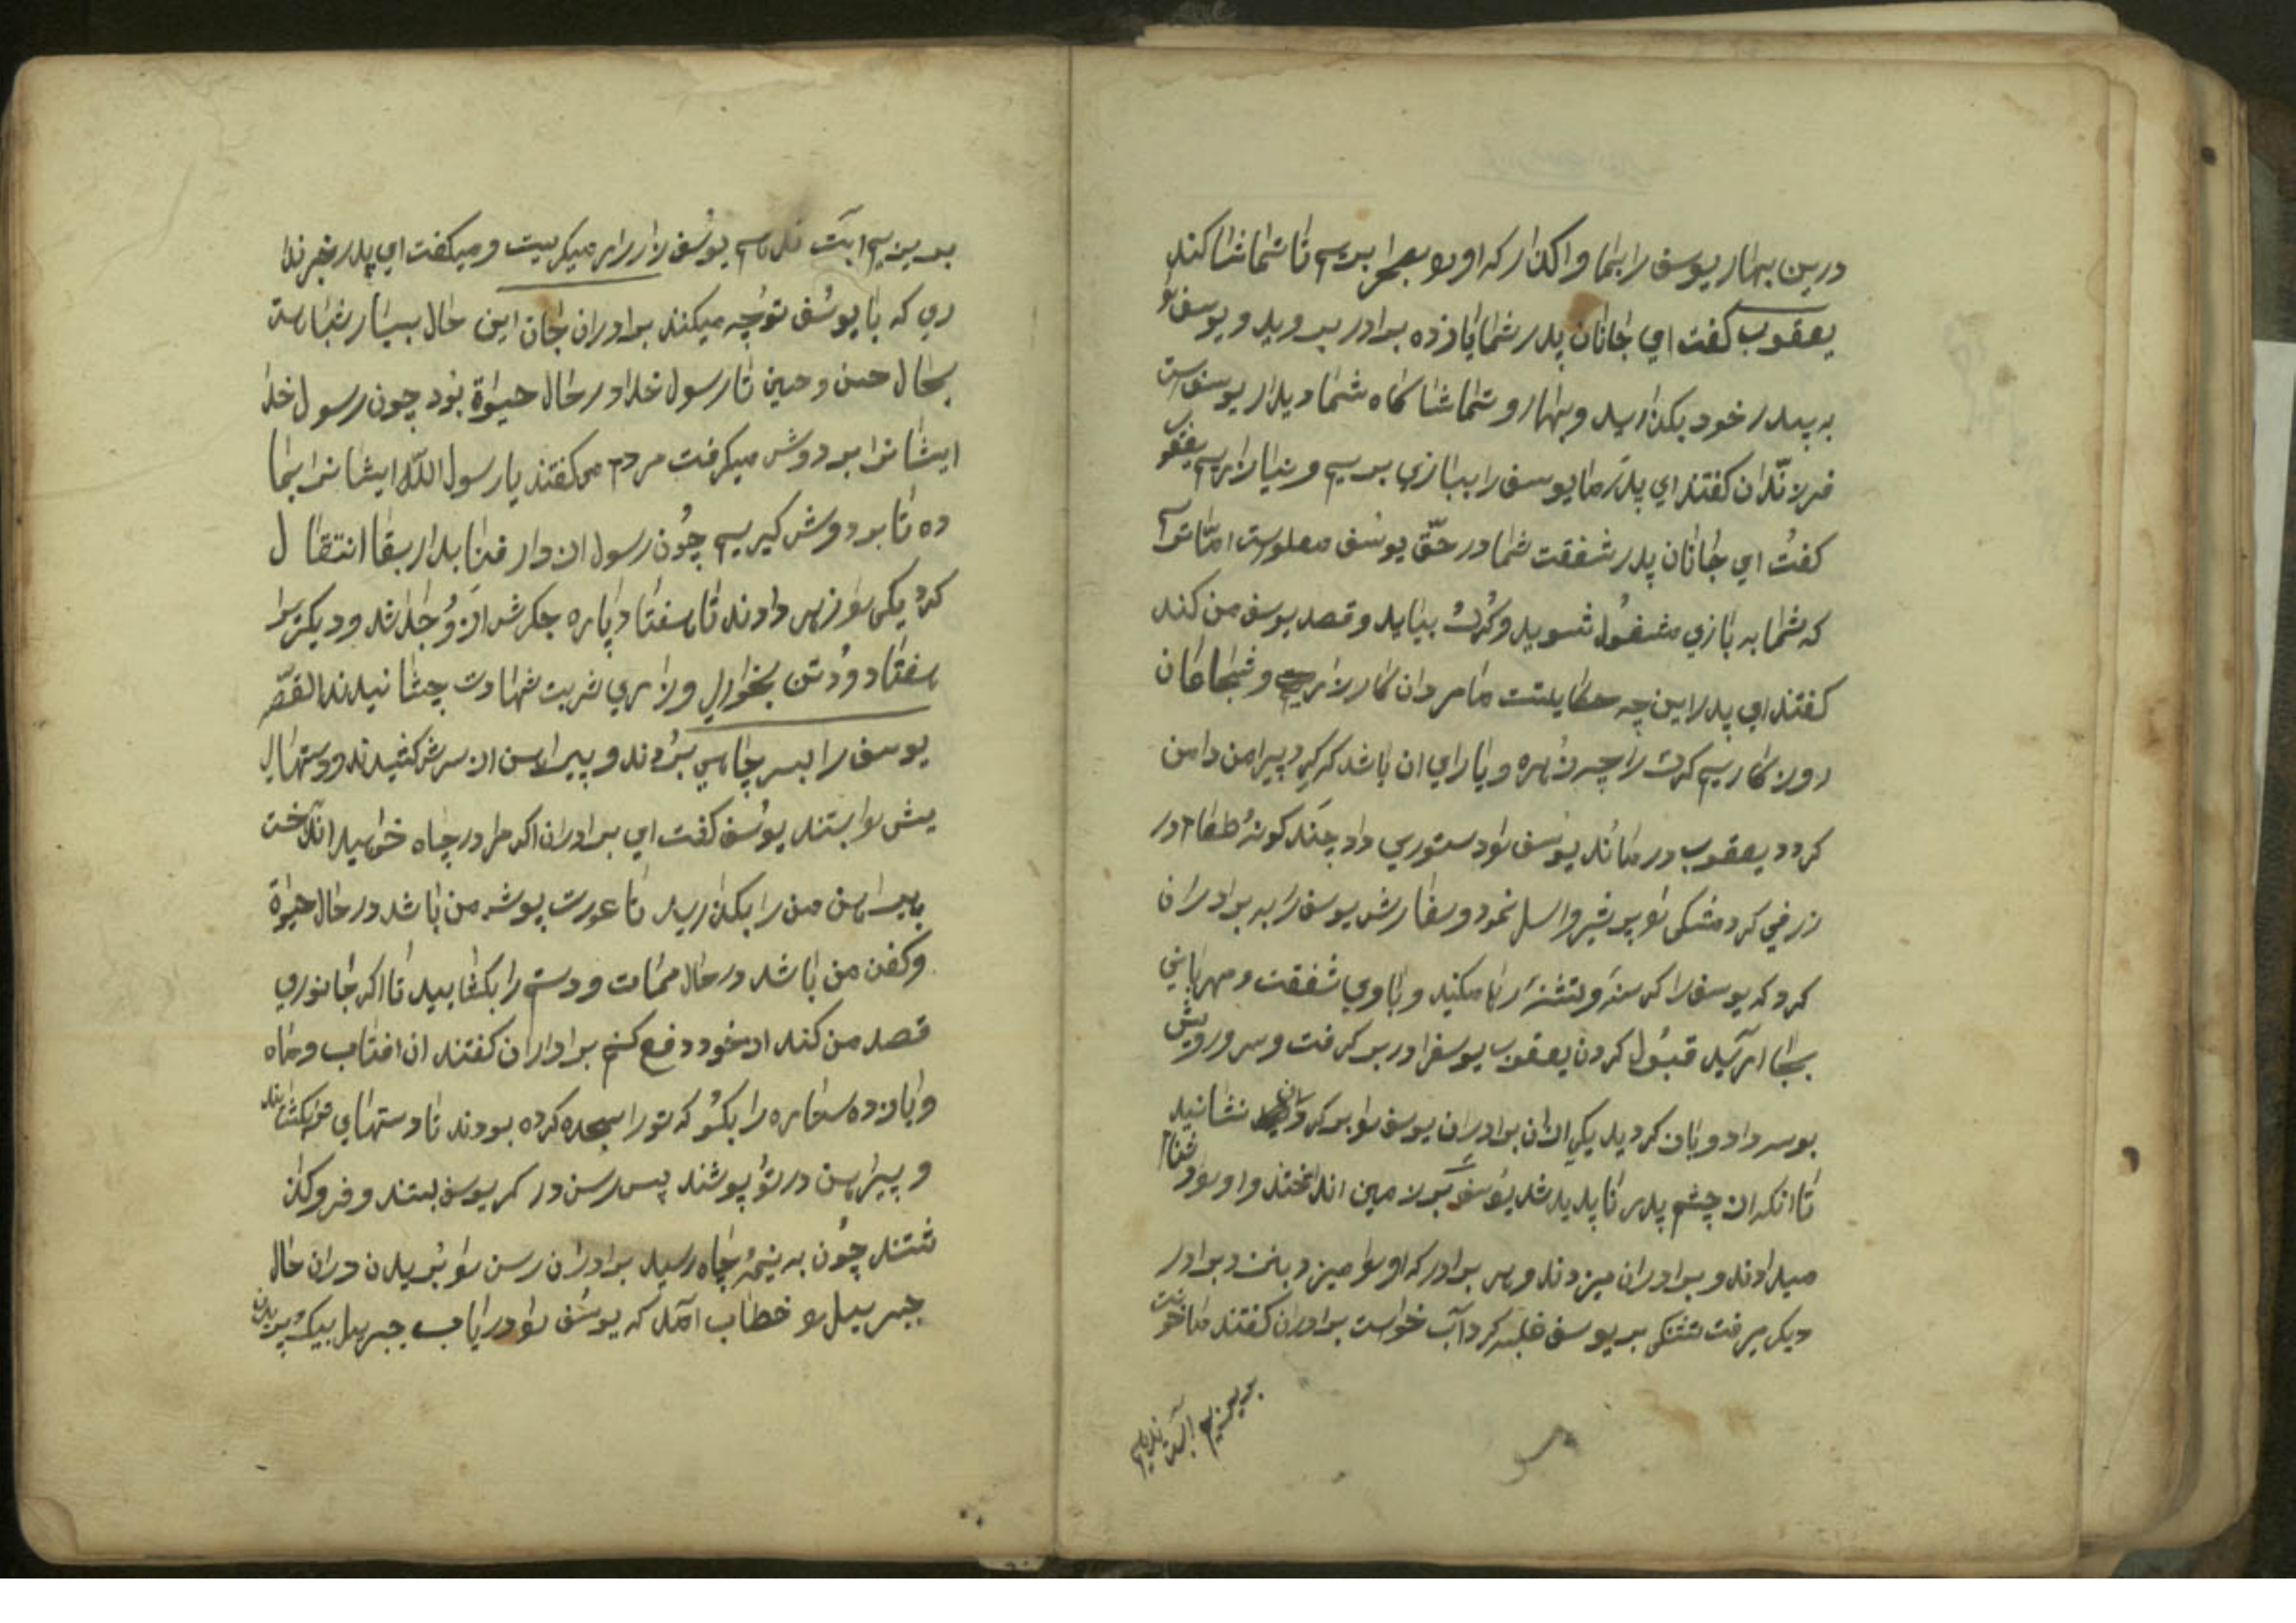 درین بهار یوسف را بما واکذار که اورا بصحرا بریم تا تماشا کند
یعقوب کفت ای جانان پدر شما یازده برادر بروید و یوسف را
به پدر خود بکذارید و بهار و تماشا کاه شما دیدار یوسف است
فرزندان کفتند ای پدر ما یوسف را ببازی بریم و نیازاریم یعقوب
کفت ای جانان پدر شفقت شما در حق یوسف معلوم است اما ترسم
که شما به بازی مشغول شوید و کرک بیاید و قصد یوسف من کند
کفتند ای پدر این چه حکایتست ما مردان کارزاریم و شجاعان
روزکاریم کرک را چه زهره و یارای ان باشد که کرد پیرامن دامن
کردد یعقوب درماند یوسف را دستوری داد چند کونه طعام در
زرفی کرد مشکی را پر شیر و اسل نمود و سفارش یوسف را به برادران
کرد که یوسف را کرسنه و تشنه رها مکنید و با وی شفقت و مهربانی
بجا آرید قبول کردن یعقوب یوسفرا در بر کرفت و سر و رویش
بوسه داد و باز کردید یکی از ان برادران یوسف را بر کردن نشانید
تا انکه از چشم پدر ناپدید شد یوسف بر زمین انداختند و اورا دشنام
میدادند و برادران میزدند و هر برادر که اورا میزد بنزد برادر
دیکر میرفت تشنکی بر یوسف غلبه کرد آب خواست برادران کفتند ما خونت
بریزیم آبت ندهیم
بریزیم ابت ندهیم یوسف زار زار میکریست و میکفت ای پدر خبر ندا
ری که با یوسف تو چه میکنند برادران جان این حال بسیار شبا هست
بحال حسن و حسین تا رسول خدا در حال حیوة بود چون رسول خدا
ایشانرا بر دوش میکرفت مردم میکفتند یا رسول الله ایشانرا بما
ده تا بر دوش کیریم چون رسول از دار فنا بدار بقا انتقال
کرد یکی را زهر دادند تا هفتاد پاره جکرش از او جدا شد و دیکریرا
هفتاد و دو تن بخواری و زاری شربت شهادت چشانیدند القصه
یوسف را بسر چاهی بردند و پیراهن از سرش کشیدند و دستهای
یش را بستند یوسف کفت ای برادران اکر مرا در چاه خواهید انداخت
پیراهن من را بکذارید تا عورت پوش من باشد در حال حیوة
و کفن من باشد در حال ممات و دستم را بکشایید تا اکر جانوری
قصد من کند از خود دفع کنم برادران کفتند ان افتاب و ماه
و یازده ستاره را بکو که تو را سجده کرده بودند تا دستهای تو بکشایند
و پیراهن در تو پوشند پس رسن در کمر یوسف بستند و فروکذا
شتند چون به نیمهٔ چاه رسید برادران رسن را بریدن دران حال
جبرییل را خطاب آمد که یوسف را دریاب جبرییل بیک پریدن